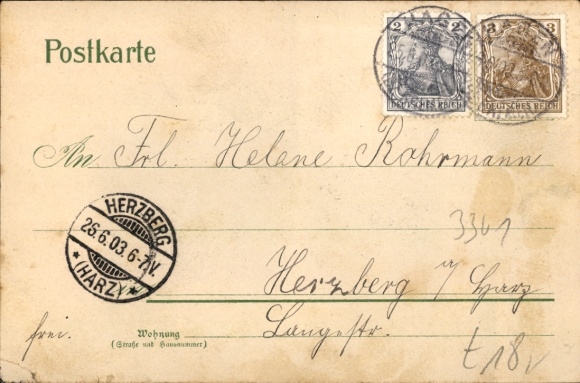 Postkarte
2 2
DEUTSCHES REICH
3 3
DEUTSCHES REICH
An Frl. Helene Rohrmann
HERZBERG
26.6.03.6-7.V.
* (HARZ) *
3361
Herzberg a/Harz
Langestr.
frei.
Wohnung
(Straße und Hausnummer)
t 18